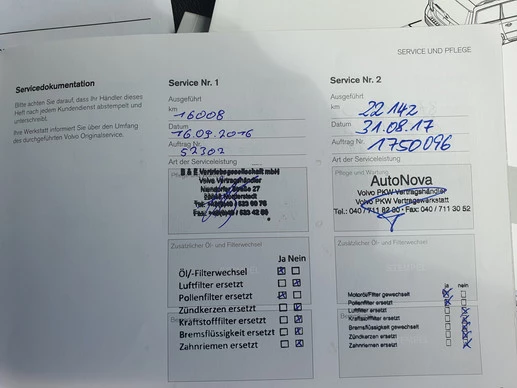 SERVICE UND PFLEGE
Servicedokumentation
Bitte achten Sie darauf, dass Ihr Händler dieses
Heft nach jedem Kundendienst abstempelt und
unterschreibt.
Ihre Werkstatt informiert Sie über den Umfang
des durchgeführten Volvo Originalservice.
Service Nr. 1
Ausgeführt
km 16008
Datum 16.09.2016
Auftrag Nr. 52302
Art der Serviceleistung
B & E Vertriebsgesellschaft mbH
Volvo Vertragshändler
Zusätzlicher Öl- und Filterwechsel
Ja Nein
Öl/-Filterwechsel
Luftfilter ersetzt
Pollenfilter ersetzt
Zündkerzen ersetzt
Kraftstofffilter ersetzt
Bremsflüssigk ersetzt
Zahnriemen ersetzt
Service Nr. 2
Ausgeführt
km 22142
Datum 31.08.17
Auftrag Nr. 1750096
Art der Serviceleistung
Pflege und Wartung
AutoNova
Volvo PKW Vertragshändler
Volvo PKW Vertragswerkstatt
Tel.: 040 / 711 82 80 · Fax: 040 / 711 30 52
Zusätzlicher Öl- und Filterwechsel
ja nein
Motoröl/Filter gewechselt
Pollenfilter ersetzt
Luftfilter ersetzt
Kraftstofffilter ersetzt
Bremsflüssigkeit gewechselt
Zündkerzen ersetzt
Zahnriemen ersetzt